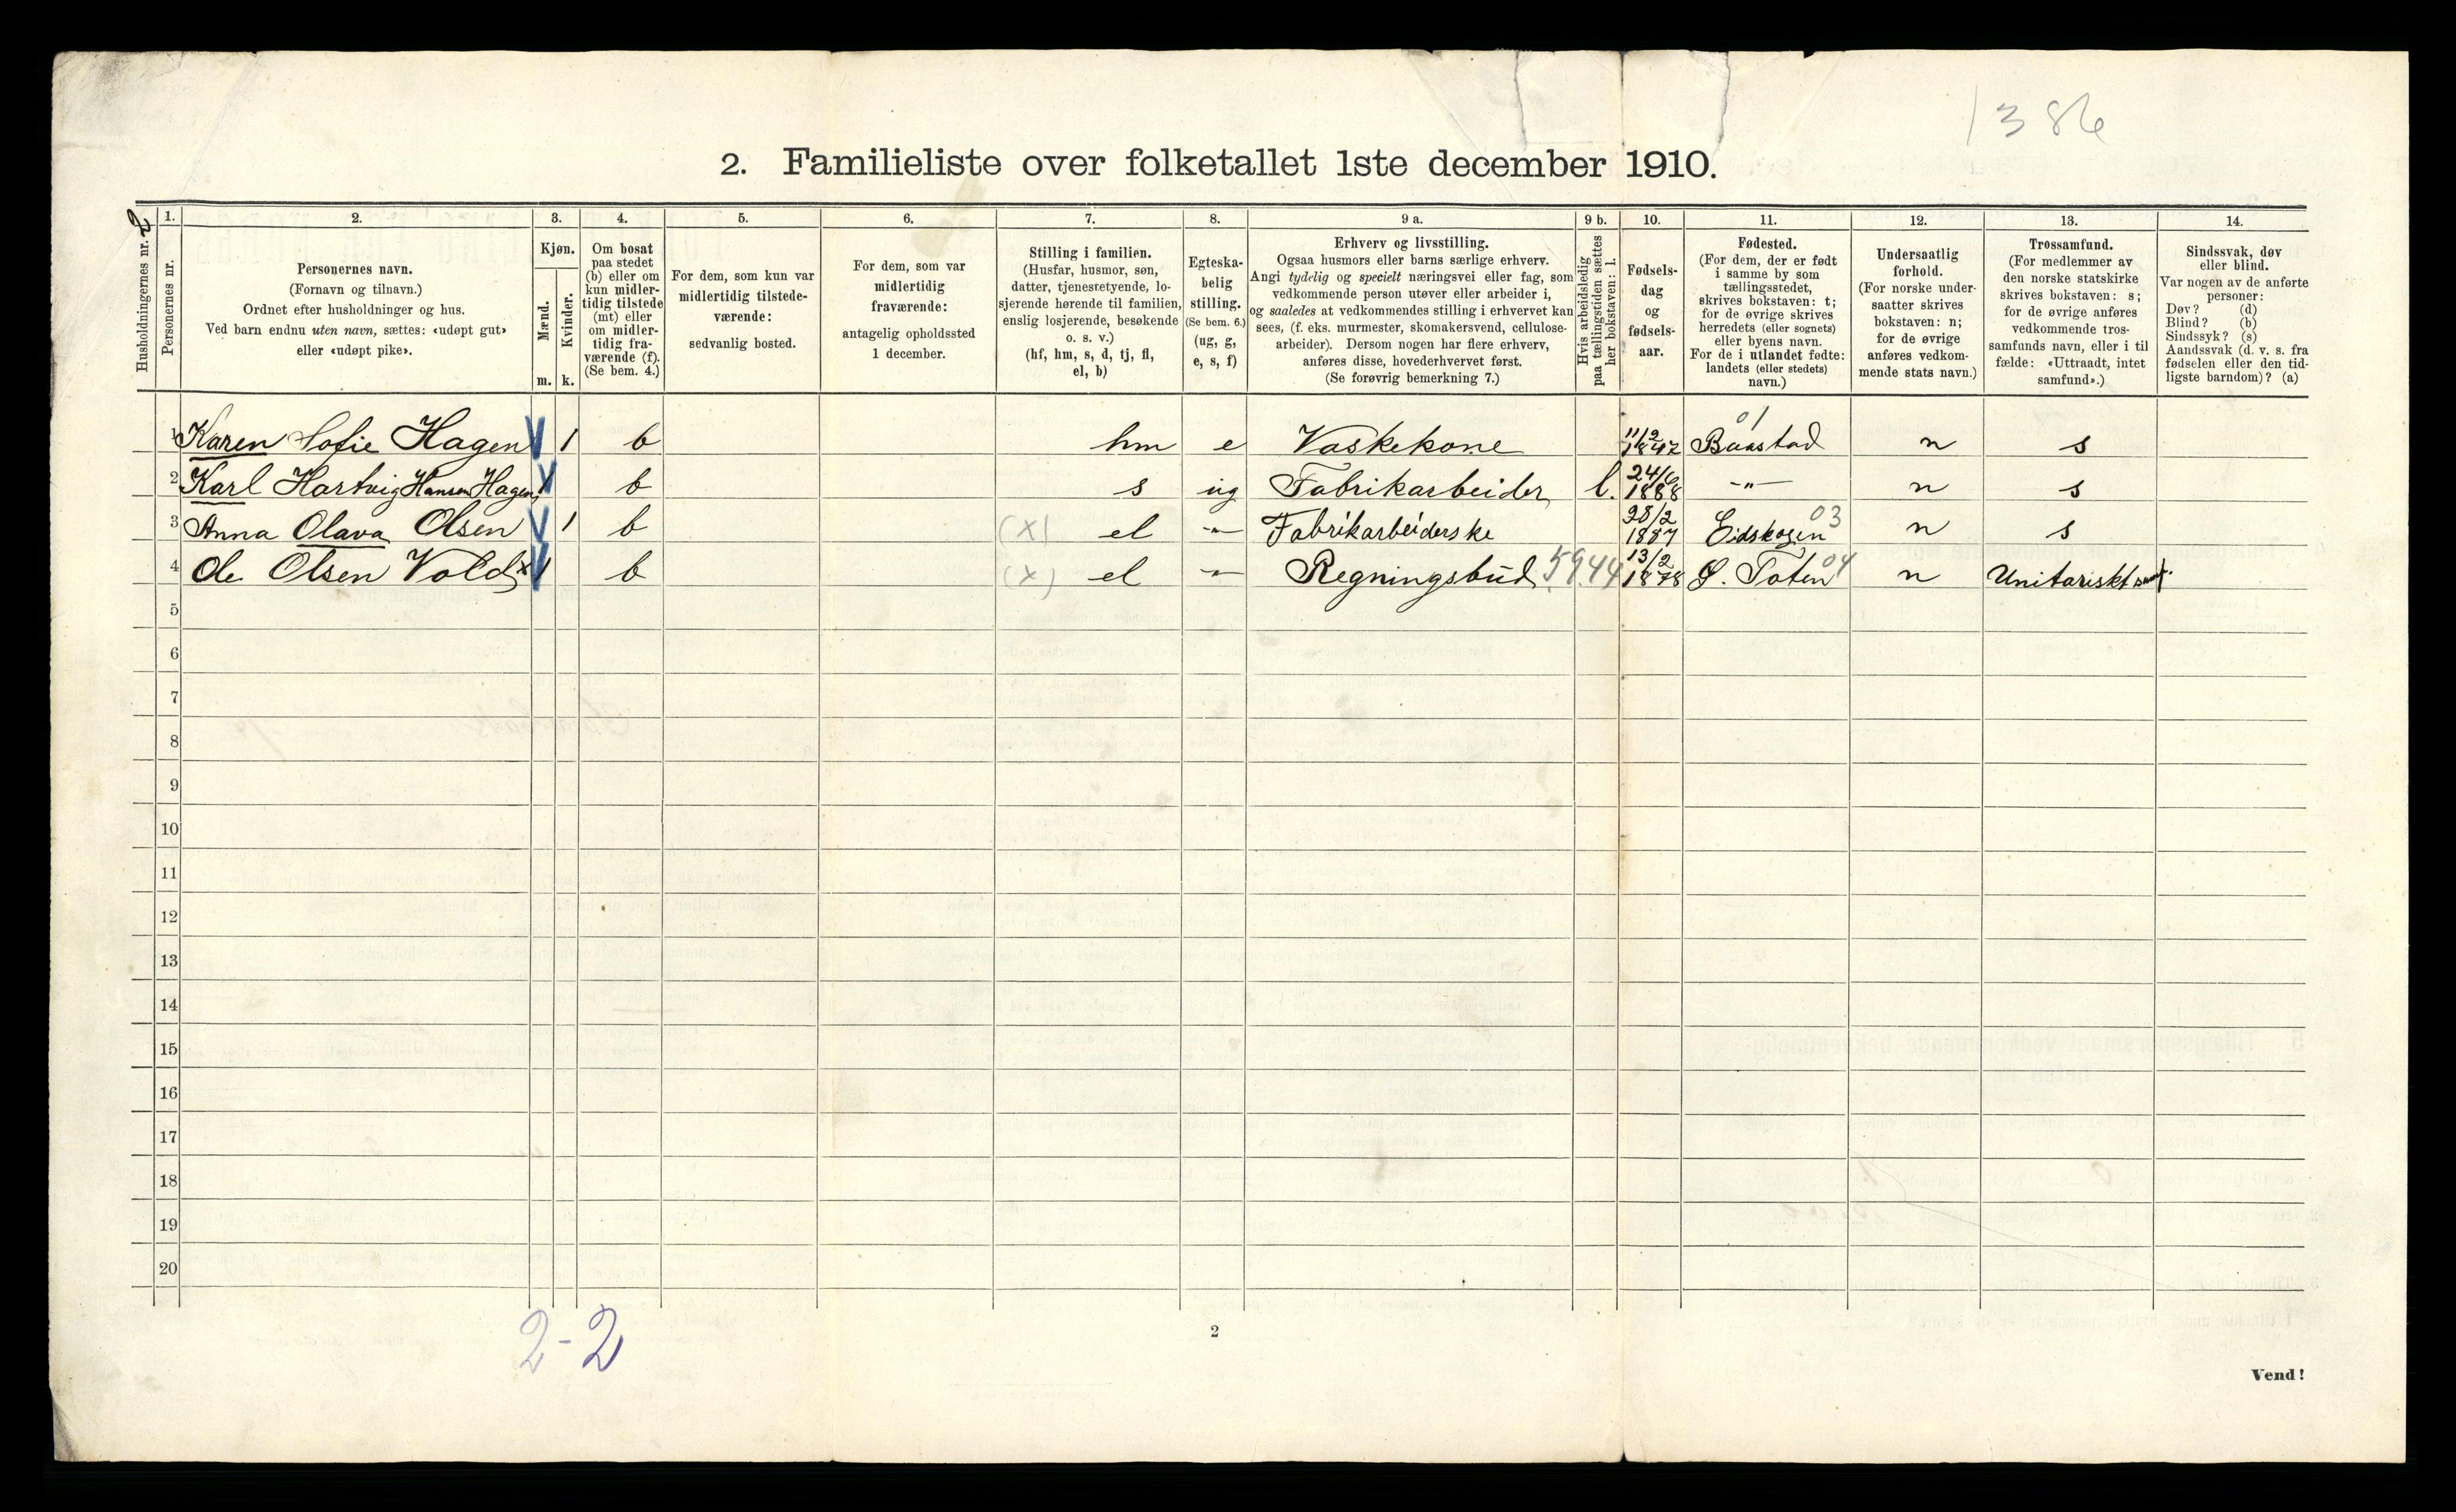 1386
2. Familieliste over folketallet 1ste december 1910.
Husholdningernes nr. 2
1. 2. 3. 4. 5. 6. 7. 8. 9 a. 9 b. 10. 11. 12. 13. 14.
Personernes nr.
Personernes navn.
(Fornavn og tilnavn.)
Ordnet efter husholdninger og hus.
Ved barn endnu uten navn, sættes: «udøpt gut»
eller «udøpt pike».
Kjøn.
Mænd.
Kvinder.
m. k.
Om bosat
paa stedet
(b) eller om
kun midler-
tidig tilstede
(mt) eller
om midler-
tidig fra-
værende (f).
(Se bem. 4.)
For dem, som kun var
midlertidig tilstede-
værende:
sedvanlig bosted.
For dem, som var
midlertidig
fraværende:
antagelig opholdssted
1 december.
Stilling i familien.
(Husfar, husmor, søn,
datter, tjenestetyende, lo-
sjerende hørende til familien,
enslig losjerende, besøkende
o. s. v.)
(hf, hm, s, d, tj, fl,
el, b)
Egteska-
belig
stilling.
(Se bem. 6.)
(ug, g,
e, s, f)
Erhverv og livsstilling.
Ogsaa husmors eller barns særlige erhverv.
Angi tydelig og specielt næringsvei eller fag, som
vedkommende person utøver eller arbeider i,
og saaledes at vedkommendes stilling i erhvervet kan
sees, (f. eks. murmester, skomakersvend, cellulose-
arbeider). Dersom nogen har flere erhverv,
anføres disse, hovederhvervet først.
(Se forøvrig bemerkning 7.)
Hvis arbeidsledig
paa tællingstiden sættes
her bokstaven: l.
Fødsels-
dag
og
fødsels-
aar.
Fødested.
(For dem, der er født
i samme by som
tællingsstedet,
skrives bokstaven: t;
for de øvrige skrives
herredets (eller sognets)
eller byens navn.
For de i utlandet fødte:
landets (eller stedets)
navn.)
Undersaatlig
forhold.
(For norske under-
saatter skrives
bokstaven: n;
for de øvrige
anføres vedkom-
mende stats navn.)
Trossamfund.
(For medlemmer av
den norske statskirke
skrives bokstaven: s;
for de øvrige anføres
vedkommende tros-
samfunds navn, eller i til
fælde: «Uttraadt, intet
samfund».)
Sindssvak, døv
eller blind.
Var nogen av de anførte
personer:
Døv? (d)
Blind? (b)
Sindssyk? (s)
Aandssvak (d. v. s. fra
fødselen eller den tid-
ligste barndom)? (a)
1 Karen Sofie Hagen 1 b hm e Vaskekone 11/2 1842 Baastad 01 n s
2 Karl Hartvig Hansen Hagen 1 b s ug Fabrikarbeider l. 24/6 1888 -"- n s
3 Anna Olava Olsen 1 b (x) el -"- Fabrikarbeiderske 28/2 1887 Eidskogen 03 n s
4 Ole Olsen Vold x 1 b (x) el -"- Regningsbud 5944 13/2 1878 Ø. Toten 04 n Unitariskt
5
6
7
8
9
10
11
12
13
14
15
16
17
18
19
20
2-2
2
Vend!